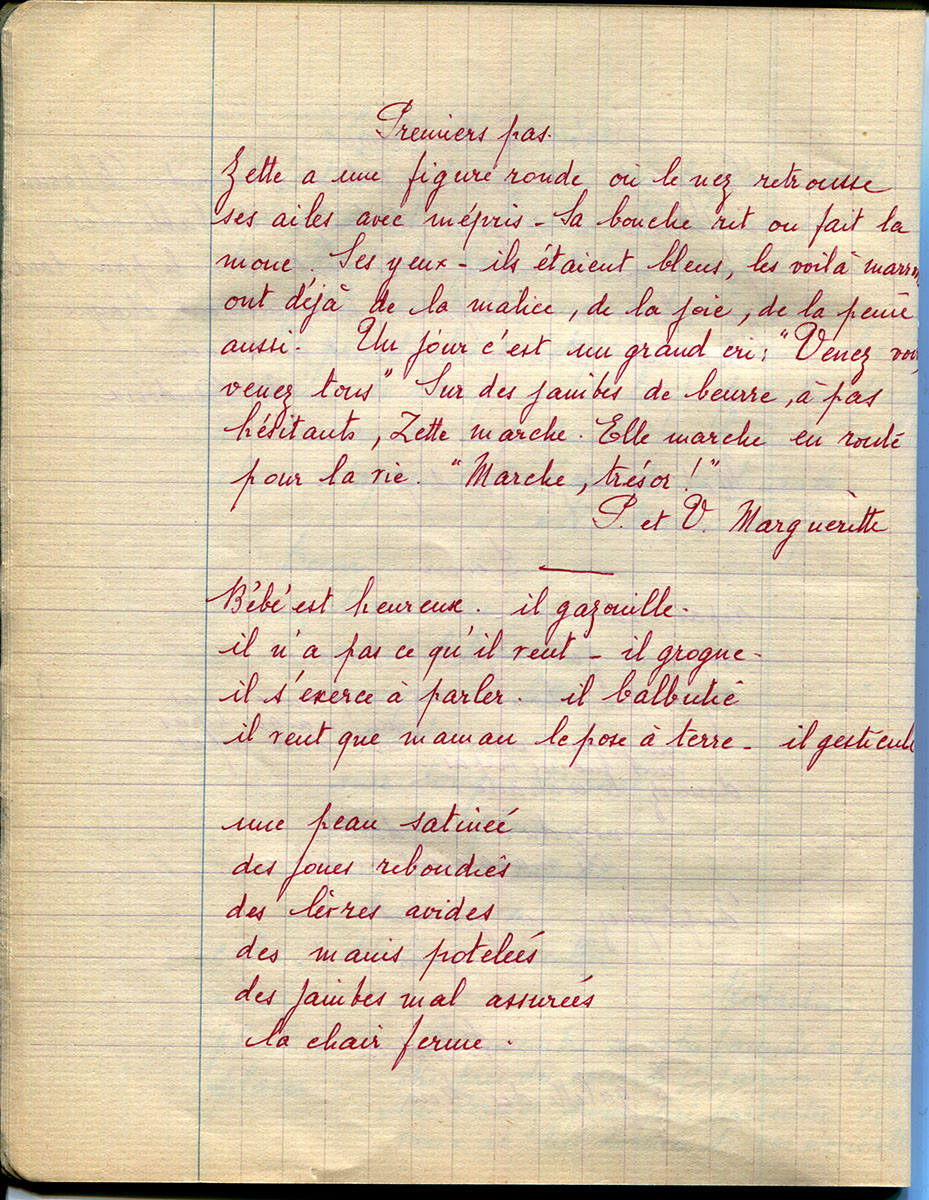 Premiers pas.
Zette a une figure ronde où le nez retrousse
ses ailes avec mépris - Sa bouche rit ou fait la
moue. Ses yeux - ils étaient bleus, les voilà marron
ont déjà de la malice, de la joie, de la peine
aussi. Un jour c'est un grand cri : "Venez voir,
venez tous" Sur des jambes de beurre, à pas
hésitants, Zette marche. Elle marche en route
pour la vie. "Marche, trésor !"
P. et V. Margueritte
Bébé est heureux. il gazouille.
il n'a pas ce qu'il veut - il grogne -
il s'exerce à parler. il balbutie
il veut que maman le pose à terre - il gesticule
une peau satinée
des joues rebondies
des lèvres avides
des mains potelées
des jambes mal assurées
la chair ferme.